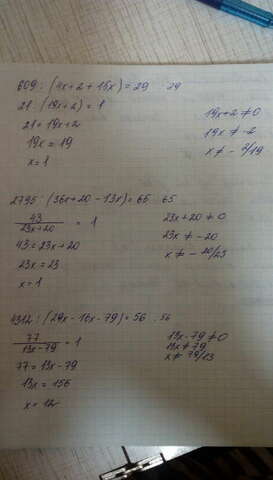 609 : (4x + 2 + 15x) = 29 29
21 : (19x + 2) = 1
21 = 19x + 2
19x = 19
x = 1
19x + 2 ≠ 0
19x ≠ -2
x ≠ - 2/19
2795 : (36x + 20 - 13x) = 65 65
43 / 23x + 20 = 1
43 = 23x + 20
23x = 23
x = 1
23x + 20 ≠ 0
23x ≠ -20
x ≠ - 20/23
4312 : (29x - 16x - 79) = 56 56
77 / 13x - 79 = 1
77 = 13x - 79
13x = 156
x = 12
13x - 79 ≠ 0
13x ≠ 79
x ≠ 79/13